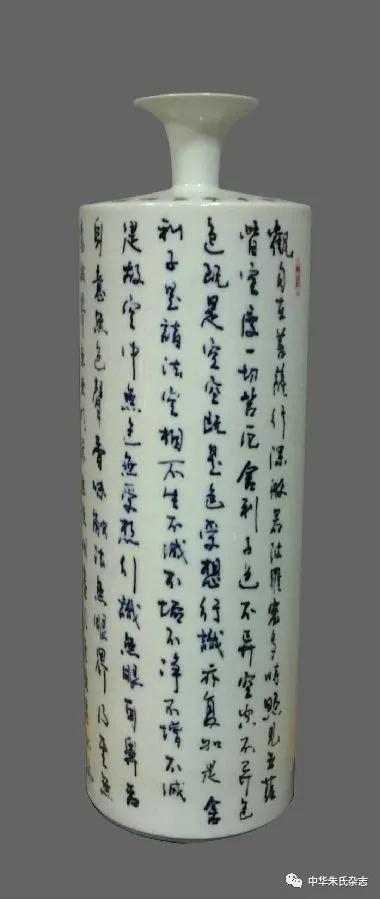 觀自在菩薩行深般若波羅蜜多時照見五蘊
皆空度一切苦厄舍利子色不異空空不異色
色既是空空既是色受想行識亦复如是舍
利子是諸法空相不生不滅不垢不净不增不減
是故空中無色無受想行識無眼耳鼻舌
身意無色聲香味触法無眼界乃至無
中华朱氏杂志